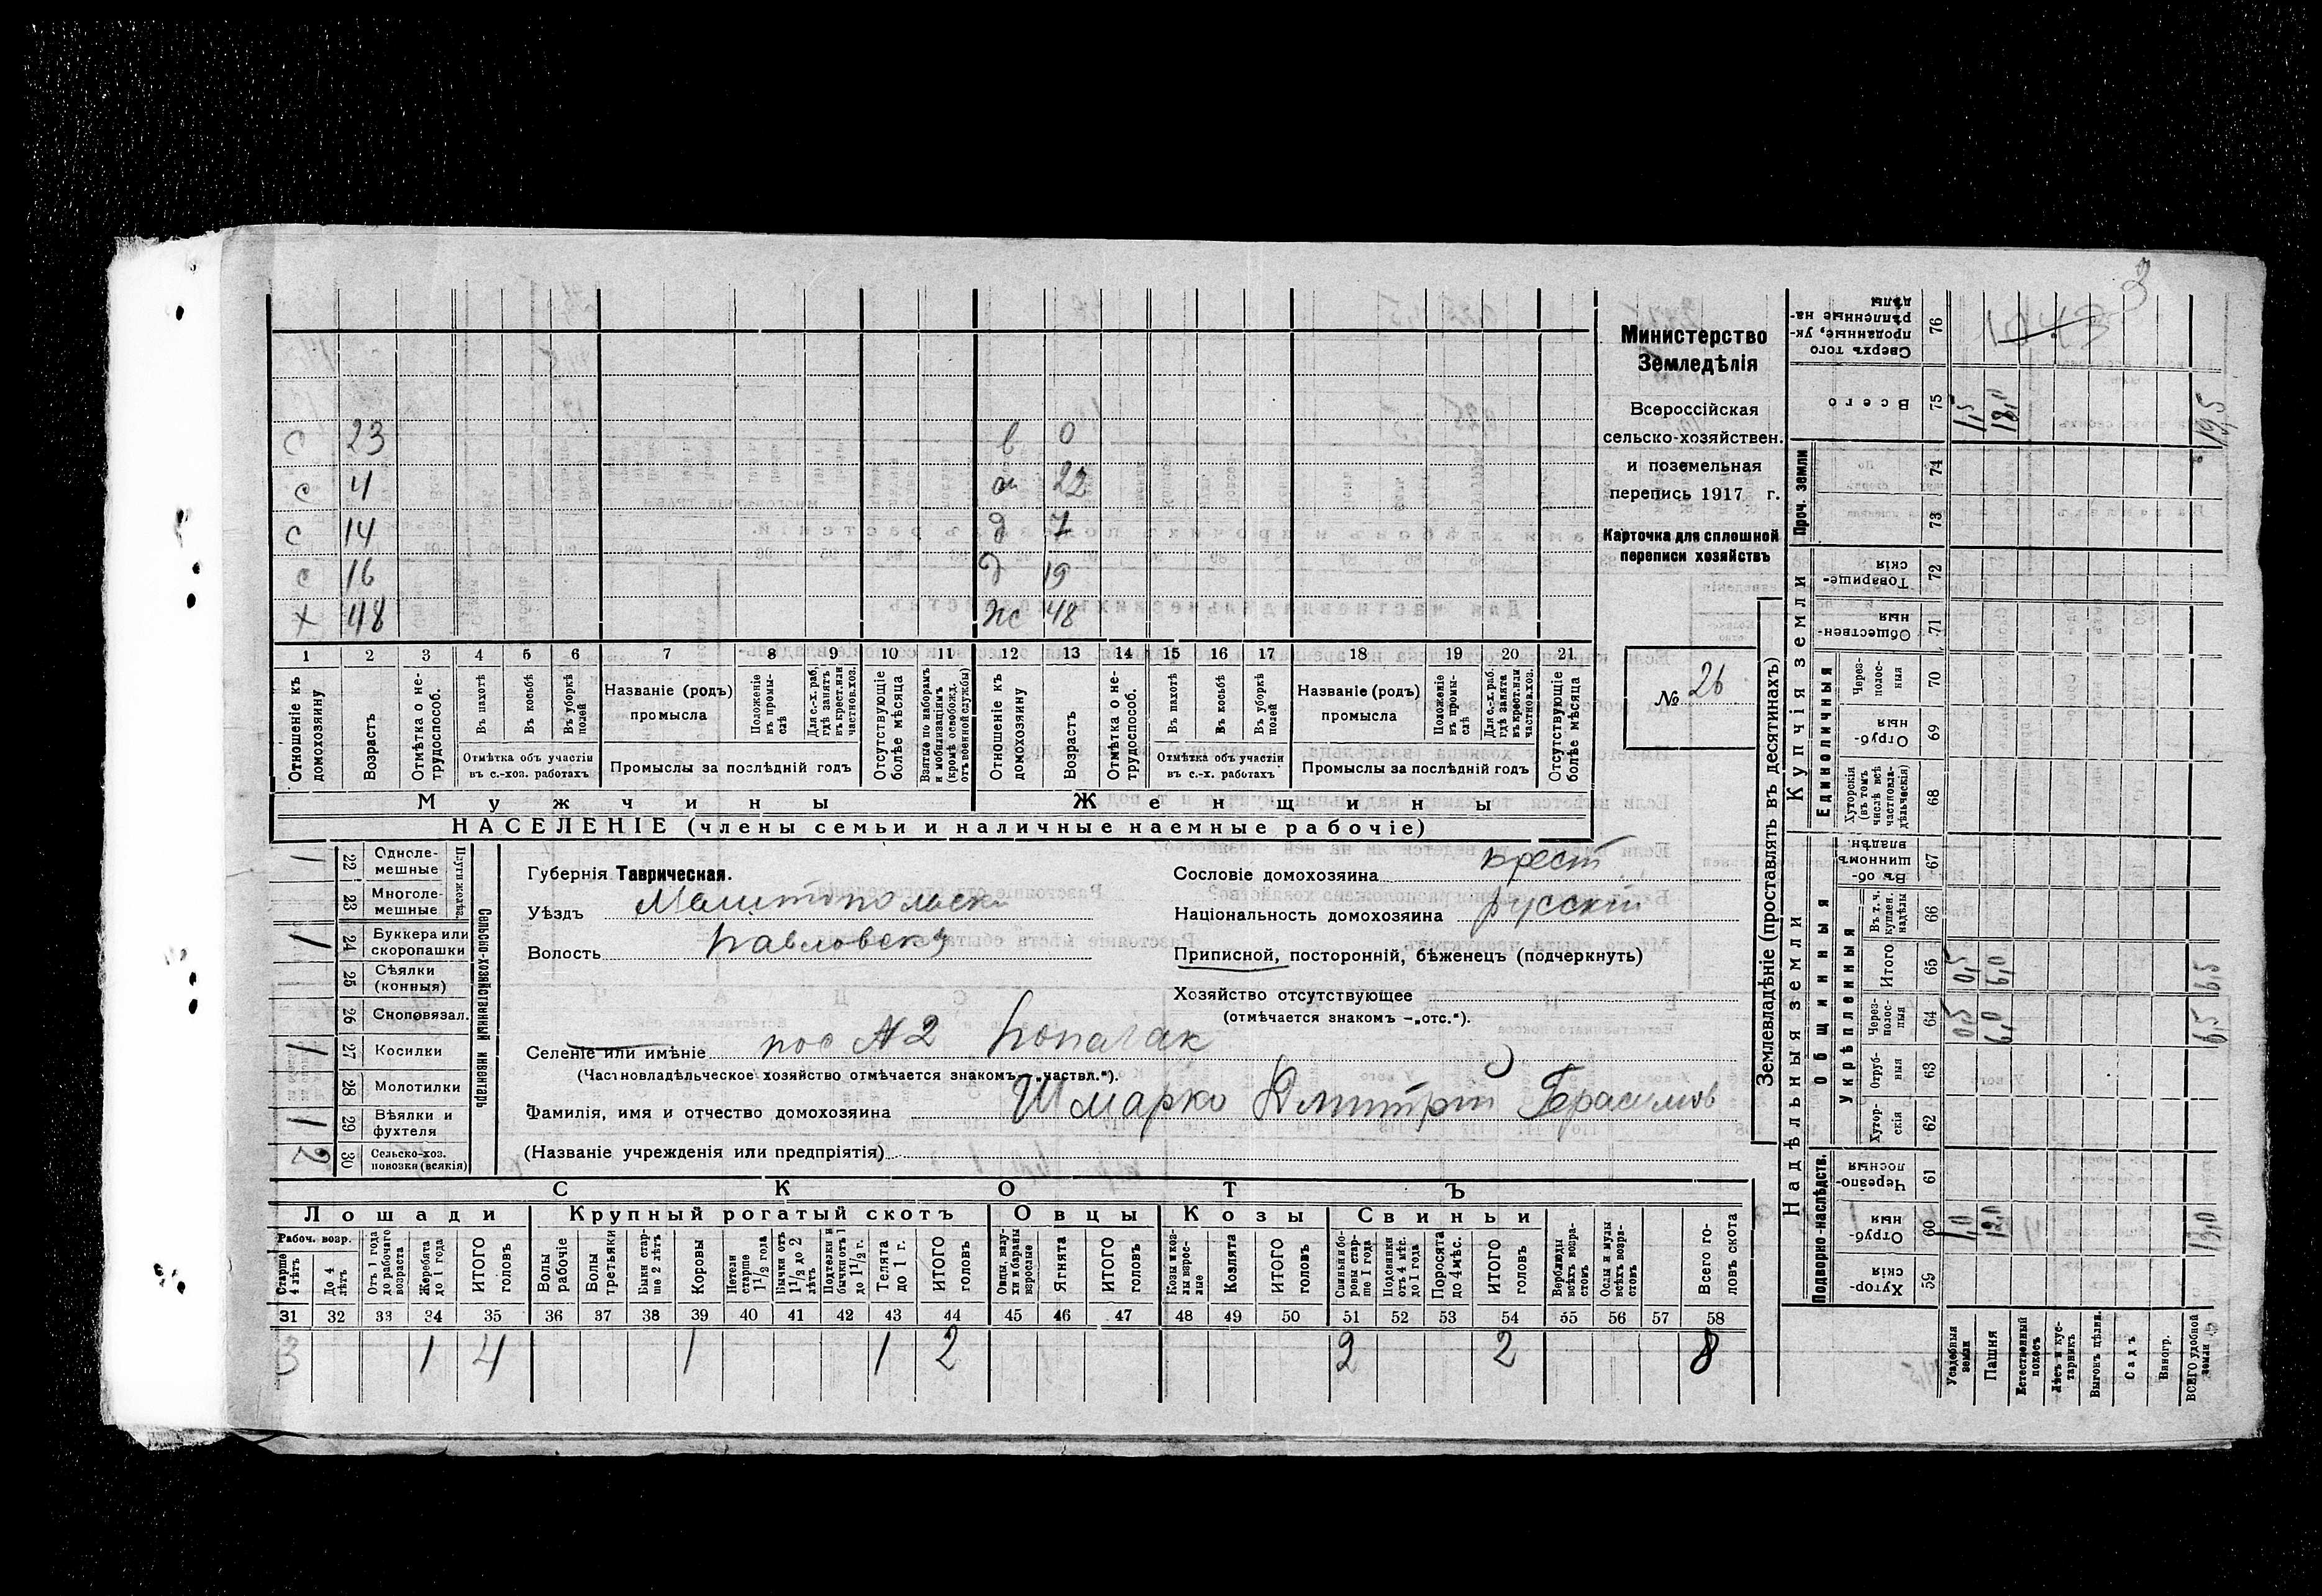 3
1543
Министерство
Земледѣлія
Всероссійская
сельско-хозяйствен.
и поземельная
перепись 1917 г.
Карточка для сплошной
переписи хозяйствъ
№ 26
с 23 0
с 4 22
с 14 д 7
с 16 д 19
х 48 жс 48
1 2 3 4 5 6 7 8 9 10 11 12 13 14 15 16 17 18 19 20 21
Отношеніе къ домохозяину
Возрастъ
Отмѣтка о не-трудоспособ.
Въ пахотѣ
Въ косьбѣ
Въ уборкѣ полей
Отмѣтка объ участіи
въ с.-хоз. работахъ
Названіе (родъ)
промысла
Положеніе въ промы-слѣ
Для с.-х. раб. гдѣ занятъ въ крест. или частнов. хоз.
Промыслы за послѣдній годъ
Отсутствующіе болѣе мѣсяца
Взятые по наборамъ и мобилизаціямъ (кромѣ освобожд. отъ военной службы)
Отношеніе къ домохозяину
Возрастъ
Отмѣтка о не-трудоспособ.
Въ пахотѣ
Въ косьбѣ
Въ уборкѣ полей
Отмѣтка объ участіи
въ с.-х. работахъ
Названіе (родъ)
промысла
Положеніе въ промы-слѣ
Для с.-х. раб. гдѣ занята въ крест. или частнов. хоз.
Промыслы за послѣдній годъ
Отсутствующіе болѣе мѣсяца
Мужчины Женщины
НАСЕЛЕНІЕ (члены семьи и наличные наемные рабочіе)
Сельско-хозяйственный инвентарь
1 22 Одноле-мешные
23 Многоле-мешные
1 24 Буккера или скоропашки
25 Сѣялки (конныя)
26 Сноповязал.
1 27 Косилки
28 Молотилки
1 29 Вѣялки и фухтеля
2 30 Сельско-хоз. повозки (всякія)
Губернія Таврическая.
Уѣздъ Мелитопольск
Волость Павловск
Сословіе домохозяина крест
Національность домохозяина русскій
Приписной, посторонній, бѣженецъ (подчеркнуть)
Хозяйство отсутствующее
(отмѣчается знакомъ —„отс.“).
Селеніе или имѣніе пос №2 Копагак
(Частновладѣльческое хозяйство отмѣчается знакомъ—„частвл.“).
Фамилія, имя и отчество домохозяина Шмарко Дмитрій Герасимов
(Названіе учрежденія или предпріятія)
СКОТЪ
Лошади Крупный рогатый скотъ Овцы Козы Свиньи
Рабоч. возр.
Старше 4 лѣтъ
До 4 лѣтъ
Отъ 1 года до рабочаго возраста
Жеребята до 1 года
ИТОГО головъ
Волы рабочіе
Волы третьяки
Быки стар-ше 2 лѣтъ
Коровы
Нетели старше 1 1/2 года
Бычки отъ 1 1/2 до 2 лѣтъ
Подтелки и бычки отъ 1 до 1 1/2 г.
Телята до 1 г.
ИТОГО головъ
Овцы, валу-хи и бараны взрослые
Ягнята
ИТОГО головъ
Козы и коз-лы взрос-лые
Козлята
ИТОГО головъ
Свиньи и бо-ровы стар-ше 1 года
Подсвинки отъ 4 мѣс. до 1 года
Поросята до 4 мѣс.
ИТОГО головъ
Верблюды всѣхъ возра-стовъ
Ослы и мулы всѣхъ возра-стовъ
Всего го-ловъ скота
31 32 33 34 35 36 37 38 39 40 41 42 43 44 45 46 47 48 49 50 51 52 53 54 55 56 57 58
3 1 4 1 1 2 2 2 8
Землевладѣніе (проставлять въ десятинахъ)
Надѣльныя земли
Купчія земли
Проч. земли
Подворно-наслѣдств.
Общинныя
Укрѣпленныя
Единоличныя
Сверхъ того проданные, ук-рѣпленные на-дѣлы 76
Всего 75 1,5 18,0 19,5
74
73
Товарище-скія 72
Обществен-ныя 71
Через-полос-ныя 70
Отруб-ныя 69
Хуторскія (въ томъ числѣ всѣ частновла-дѣльческія) 68
Въ об-щинномъ владѣн. 67
Въ т. ч. куплен. надѣлы 66
Итого 65 0,5 6,0 6,5
Через-полос-ныя 64 0,5 6,0 6,5
Отруб-ныя 63
Хутор-скія 62
Черезпо-лосныя 61
Отруб-ныя 60 1,0 12,0 13,0
Хутор-скія 59
Усадебныя земли
Пашня
Естественный покосъ
Лѣсъ и кус-тарникъ
Выгонъ цѣлин.
Садъ
Виногр.
ВСЕГО удобной земли